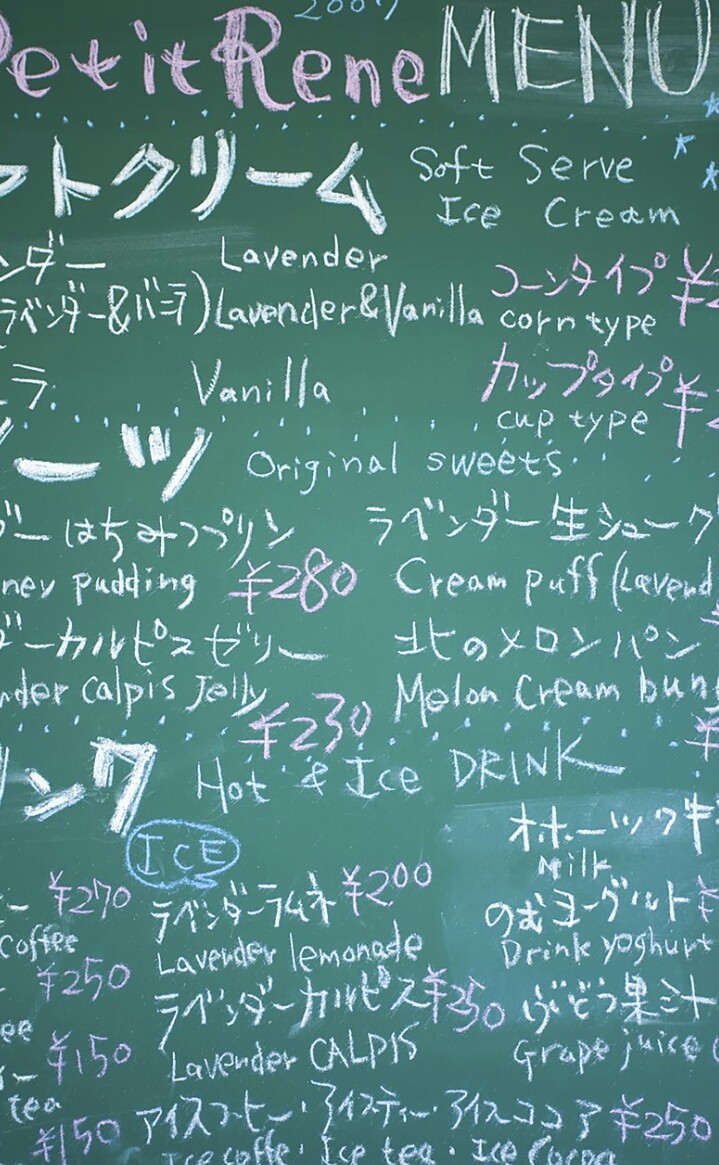 2007
Petit Rene MENU
フトクリーム Soft Serve
Ice Cream
ンダー Lavender
ラベンダー&バニラ) Lavender&Vanilla
コーンタイプ ¥2
corn type
ラ Vanilla
カップタイプ ¥2
cup type
ーツ Original sweets
ダーはちみつプリン
ney pudding ¥280
ラベンダー生シューク
Cream puff (Lavend
ダーカルピスゼリー
nder calpis Jelly
¥230
北のメロンパン
Melon Cream bun
¥
リンク Hot & Ice DRINK
ICE
ー ¥270
coffee
¥250
ee
ー ¥150
tea
¥150
ラベンダーラムネ ¥200
Lavender lemonade
ラベンダーカルピス ¥250
Lavender CALPIS
アイスコーヒー・アイスティー・アイスココア ¥250
Ice coffe・Ice tea・Ice Cocoa
オホーツク牛
Milk
のむヨーグルト ¥
Drink yoghurt
ぶどう果汁
Grape juice (